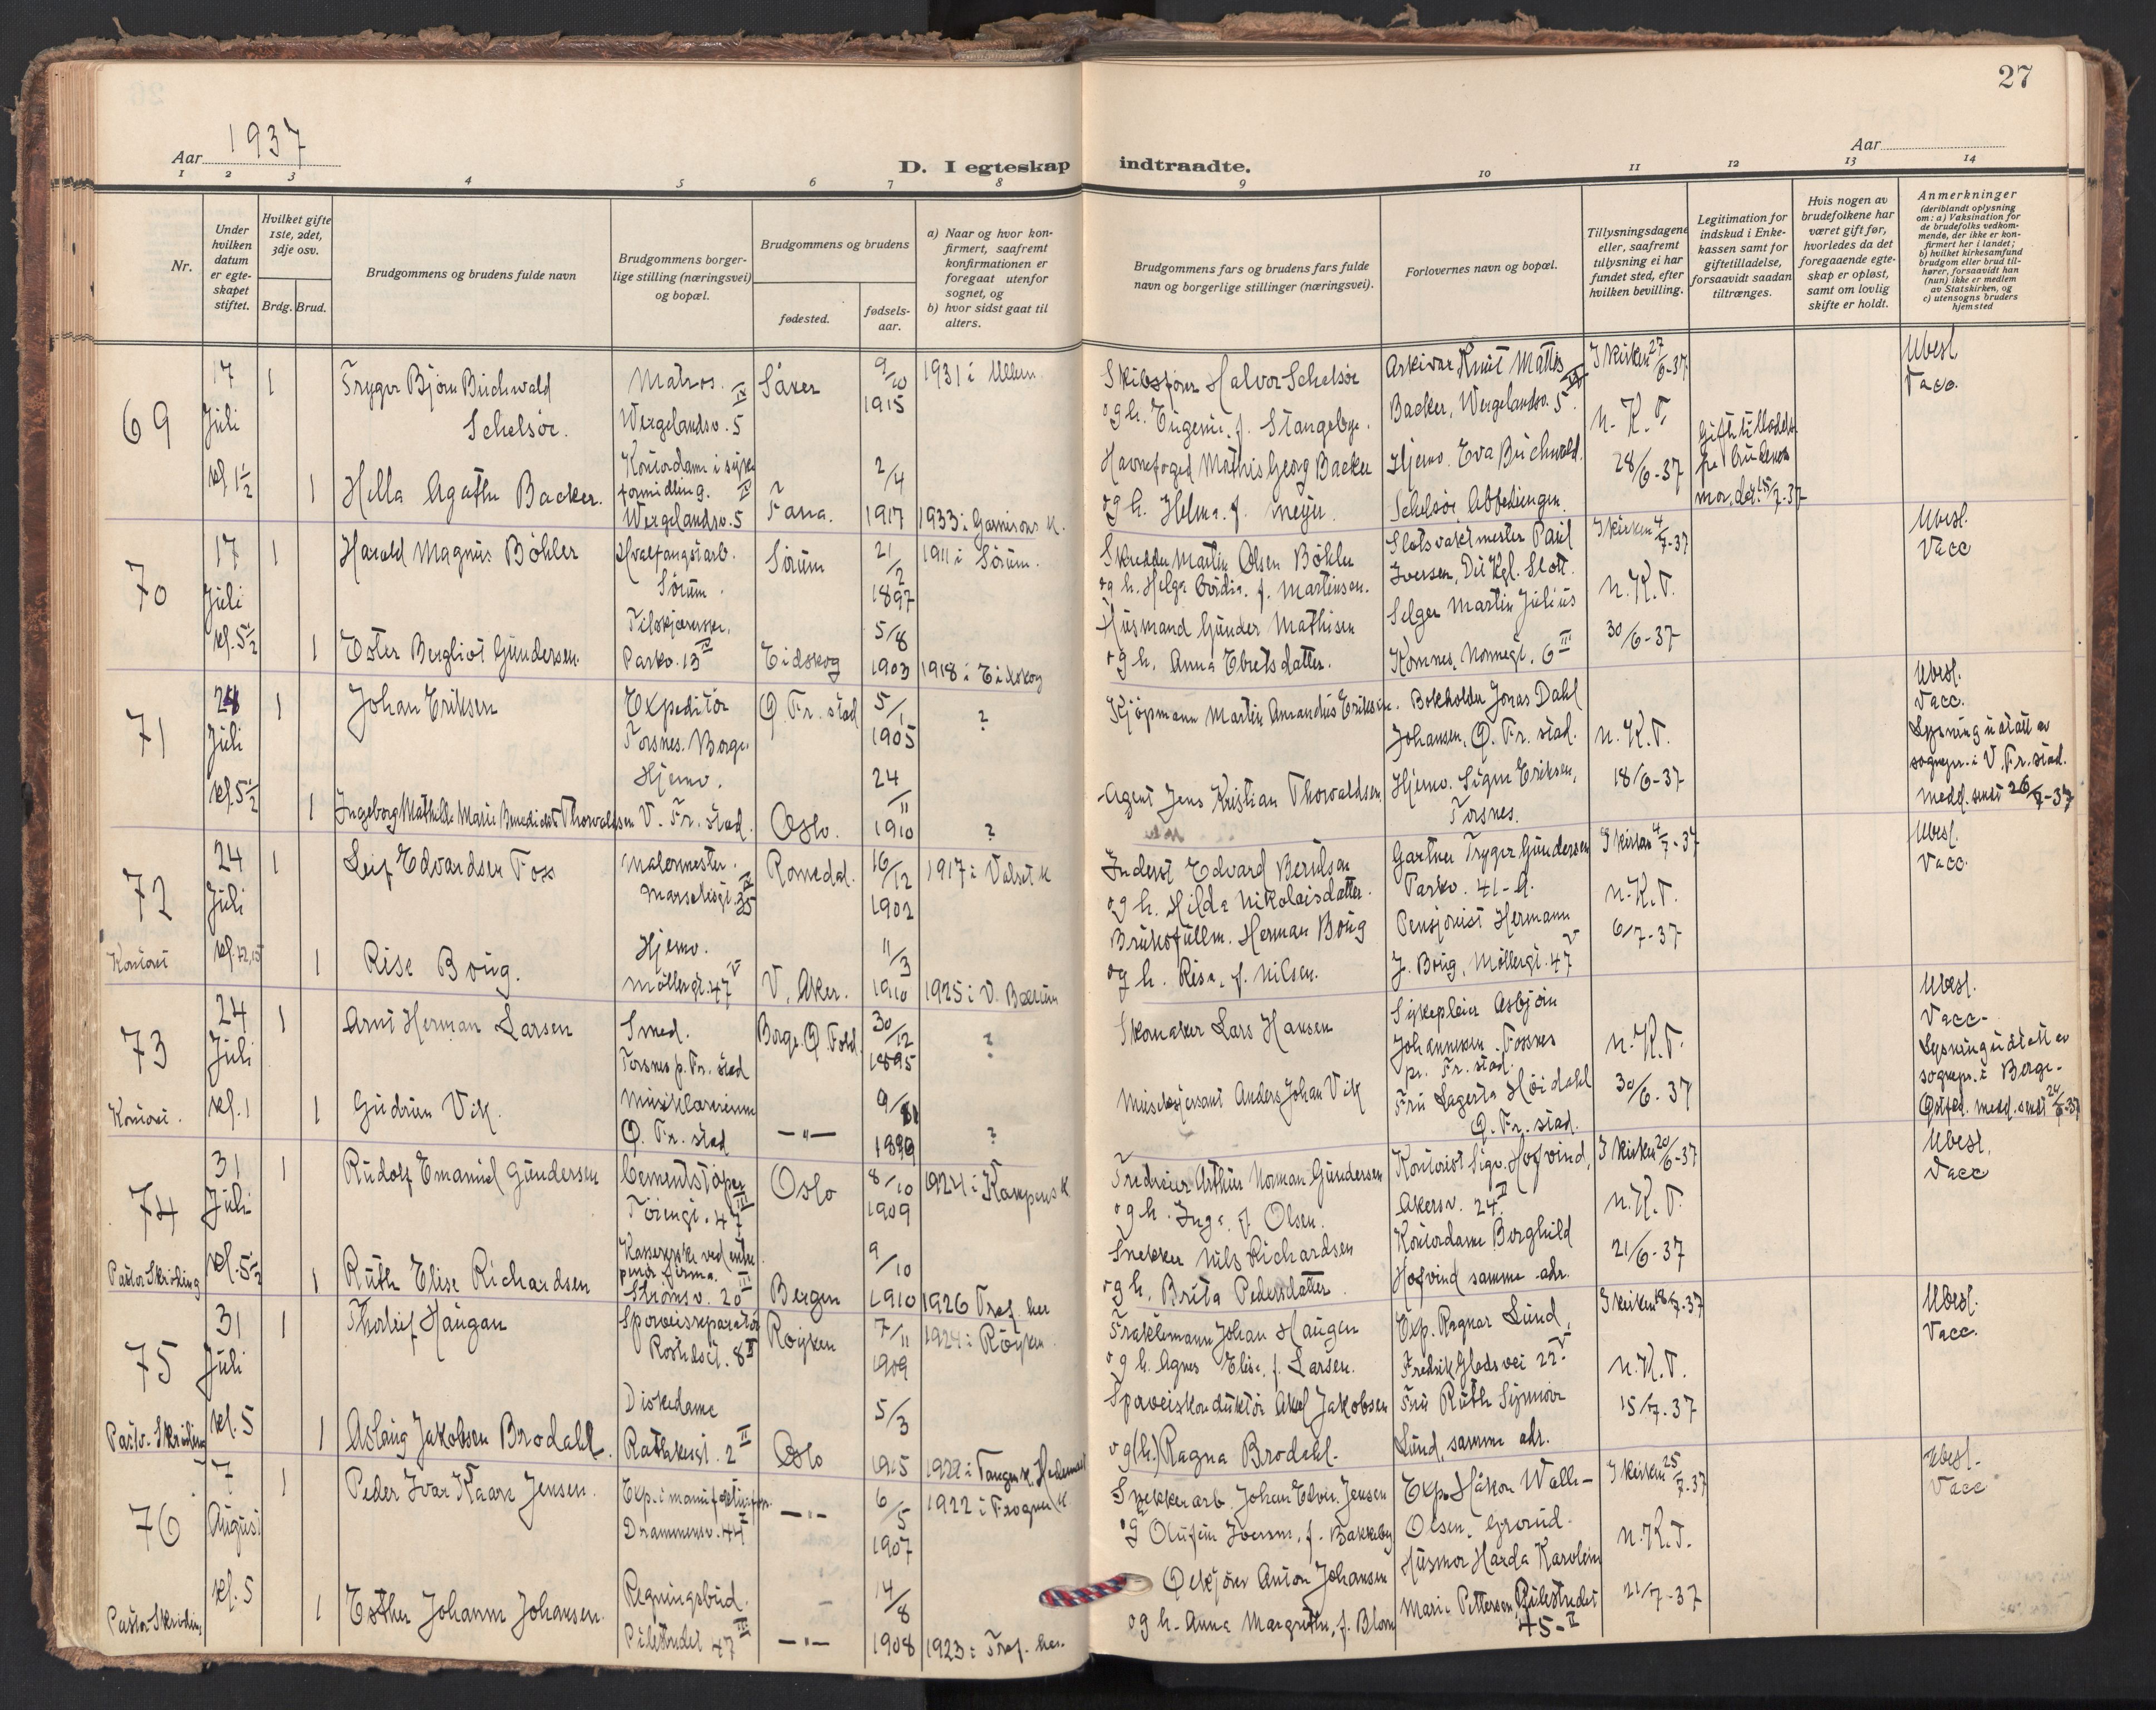 27
Aar 1937
Aar
D. I egteskap indtraadte.
1 2 3 4 5 6 7 8 9 10 11 12 13 14
Nr.
Under hvilken datum er egteskapet stiftet.
Hvilket gifte 1ste, 2det, 3dje osv.
Brdg. Brud.
Brudgommens og brudens fulde navn
Brudgommens borgerlige stilling (næringsvei) og bopæl.
Brudgommens og brudens
fødested.
fødselsaar.
a) Naar og hvor konfirmert, saafremt konfirmationen er foregaat utenfor sognet, og
b) hvor sidst gaat til alters.
Brudgommens fars og brudens fars fulde navn og borgerlige stillinger (næringsvei).
Forlovernes navn og bopæl.
Tillysningsdagene eller, saafremt tillysning ei har fundet sted, efter hvilken bevilling.
Legitimation for indskud i Enkekassen samt for giftetilladelse, forsaavidt saadan tiltrænges.
Hvis nogen av brudefolkene har været gift før, hvorledes da det foregaaende egteskap er opløst, samt om lovlig skifte er holdt.
Anmerkninger
(deriblandt oplysning om: a) Vaksination for de brudefolks vedkommende, der ikke er konfirmert her i landet;
b) hvilket kirkesamfund brudgom eller brud tilhører, forsaavidt han (hun) ikke er medlem av Statskirken, og
c) utensogns bruders hjemsted
69
17 Juli kl. 1 1/2
1 Trygve Bjørn Buchwald Schelsøe.
Matros. Wergelandsv. 5 IV
9/10 1915
1931 i Ullern
Skibsfører Halvor Schelsøe
og h. Eugenie, f. Stangebye.
Arkivar Knut Mathis Backer, Wergelandsv. 5 IV.
I kirken 27/6-37
n. K. T.
28/6-37
Ubesl. Vacc.
1 Hella Agathe Backer.
Kontordame i Wergelandsv. 5 IV
Fana.
2/4 1917
1933 i Garnisons k.
Havnefoged Mathis Georg Backer
og h. Helma f. Meyer
Hjemv. Eva Buchwald Schelsøe
mor, dat. 15/7-37
70
17 Juli kl. 5 1/2
1 Harald Magnus Böhler
Hvalfangstarb. Sørum.
Sørum
21/2 1897
1911 i Sørum.
Skredder Martin Olsen Böhler
og h. Helga f. Martinsen.
Slotsvaktmester Paul Iversen, Det Kgl. Slott.
I kirken 4/7-37
n. K. T.
30/6-37
Ubesl. Vacc
1 Ester Bergliot Gundersen.
Parkv. 13 IV
Eidskog
5/8 1903
1918 i Eidskog
Husmand Gunder Mathisen
og h. Anna Ebretsdatter.
Selger Martin Julius Kornnes, Normegt. 6 III
71
24 Juli kl. 5 1/2
1 Johan Eriksen
Expeditør Torsnes. Borge.
Ø. Fr. stad
5/1 1905
?
Kjøpmann Martin Amandus Eriksen.
Bokholder Jonas Dahl Johansen, Ø. Fr. stad.
n. K. T.
18/6-37
Ubesl. Vacc.
Lysning utstatt av sognepr. i V. Fr. stad.
Medd. sendt 26/7-37
1 Ingeborg Mathilde Marie Benedicte Thorvaldsen
Hjemv. V. Fr. stad.
Oslo.
24/11 1910
?
Agent Jens Kristian Thorvaldsen
Hjemv. Signe Eriksen, Torsnes.
72
Kontoret
24 Juli kl. 12,15
1 Leif Edvardsen Foss
Malermester. Marselisgt. 35 IV
Romedal.
16/12 1902
1917 i Vålset k
Inderst Edvard Berntsen
og h. Hilda Nikolaisdatter.
Gartner Trygve Gundersen Parkv. 41-A.
I kirken 4/7-37
n. K. T.
6/7-37
Ubesl. Vacc.
1 Rise Boug.
Hjemv. Møllergt. 47 V
V. Aker.
11/3 1910
1925 i V. Bærum
Bruksfullm. Herman Boug
og h. Risa, f. Nilsen.
Pensjonist Hermann J. Boug, Møllergt. 47 V
73
Kontoret.
24 Juli kl. 1
1 Arnt Herman Larsen
Smed. Torsnes p. Fr. stad
Borge. Ø Fold.
30/12 1895
?
Skomaker Lars Hansen
Sykepleier Asbjørn Johannesen. Torsnes pr. Fr. stad.
n. K. T.
30/6-37
Ubesl. Vacc.
Lysning utstatt av sognepr. i Borge.
Østfol. medd. sendt
1 Gudrun Vik.
Musiklærerinne Ø. Fr. stad
—"—
?
Musiksjersant Anders Johan Vik
Fru Lagerta Høidahl Ø. Fr. stad.
74
Pastor Skriding
31 Juli kl. 5 1/2
1 Rudolf Emanuel Gundersen
Cementstøper Töiengt. 47 III
Oslo
8/10 1909
1924 i Kampens k
Arthur Norman Gundersen
og h. Inga f. Olsen.
Kontorist Sigv. Hofvind, Akersv. 24 II.
I kirken 20/6-37
n. K. T.
21/6-37
Ubesl. Vacc
1 Ruth Elise Richardsen
Strømsv. 20 III
Bergen
9/10 1910
1926 Tref. her
Snekker Nils Richardsen
og h. Brita Pedersdatter.
Kontordame Borghild Hofvind samme adr.
75
Pastor Skriding
31 Juli kl. 5
1 Thorleif Haugan
Sporveisreparatør 8 II
Røyken
7/11 1909
1924 i Røyken.
Johan Haugen
og h. Agnes Elise, f. Larsen.
Exp. Ragnar Lund, Fredrik Glads vei 22 V
I kirken 18/7-37
n. K. T.
15/7-37
Ubesl. Vacc.
1 Aslaug Jakobsen Brodahl.
Diskedame Rathkesgt. 2 II
Oslo
5/3 1915
1922 i Tangen k. Hedemark
Sporveiskonduktør Aksel Jakobsen
og (h.) Ragna Brodahl.
Fru Ruth Synnøve Lund, samme adr.
76
Pastor Skriding
7 August kl. 5
1 Peder Ivar Kaare Jensen.
Exp. i manufakturforr. Drammensv. 44 I
—"—
6/5 1907
1922 i Frogner k
Snekkerarb. Johan Edvin Jensen
og Olufine Iversen, f. Bakkeby
Exp. Håkon Walle-Olsen, Grorud.
I kirken 25/7-37
n. K. T.
21/7-37
Ubesl. Vacc
1 Esther Johanne Johansen.
Regningsbud. Pilestredet 47 III
—"—
14/8 1908
1923 i Tref. her.
Ølkjører Anton Johansen
og h. Anna Margrethe, f. Blom
Husmor Harda Karoline Marie Pettersen, Pilestredet 45-II